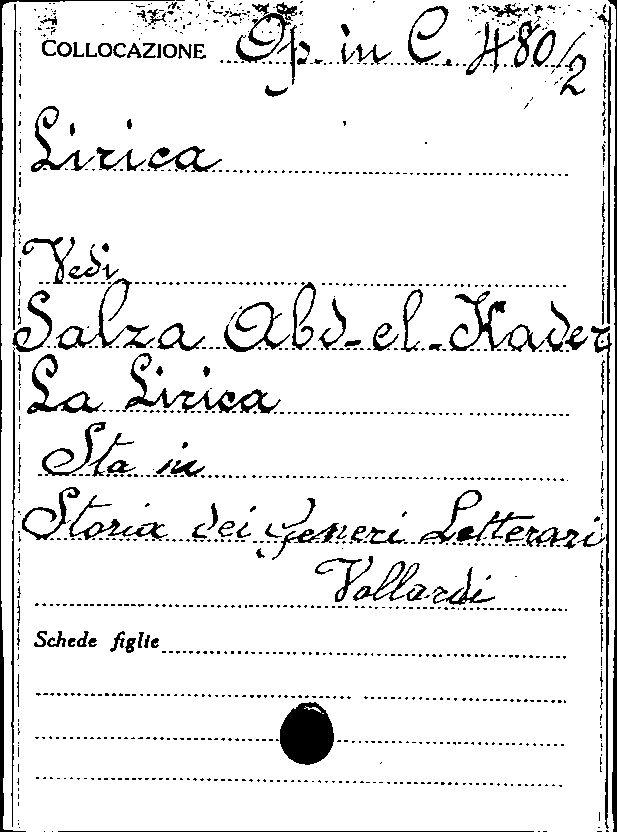 COLLOCAZIONE Op. in C. 480/2
Lirica
Vedi
Salza Abd-el-Kader
La Lirica
Sta in
Storia dei Generi Letterari
Vallardi
Schede figlie